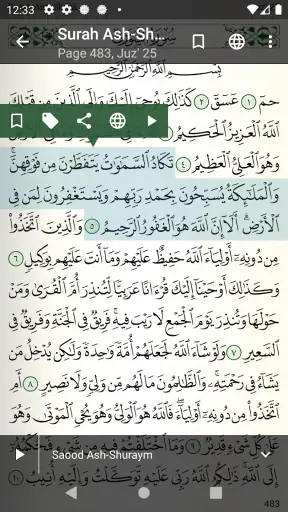 12:33
Surah Ash-Sh...
Page 483, Juz' 25
بِسْمِ اللَّهِ الرَّحْمَٰنِ الرَّحِيمِ
حمٓ ١ عٓسٓقٓ ٢ كَذَٰلِكَ يُوحِىٓ إِلَيْكَ وَإِلَى ٱلَّذِينَ مِن قَبْلِكَ
ٱللَّهُ ٱلْعَزِيزُ ٱلْحَكِيمُ
وَهُوَ ٱلْعَلِىُّ ٱلْعَظِيمُ ٤ تَكَادُ ٱلسَّمَٰوَٰتُ يَتَفَطَّرْنَ مِن فَوْقِهِنَّ ۚ
وَٱلْمَلَٰٓئِكَةُ يُسَبِّحُونَ بِحَمْدِ رَبِّهِمْ وَيَسْتَغْفِرُونَ لِمَن فِى
ٱلْأَرْضِ ۗ أَلَآ إِنَّ ٱللَّهَ هُوَ ٱلْغَفُورُ ٱلرَّحِيمُ ٥ وَٱلَّذِينَ ٱتَّخَذُوا۟
مِن دُونِهِۦٓ أَوْلِيَآءَ ٱللَّهُ حَفِيظٌ عَلَيْهِمْ وَمَآ أَنتَ عَلَيْهِم بِوَكِيلٍ ٦
وَكَذَٰلِكَ أَوْحَيْنَآ إِلَيْكَ قُرْءَانًا عَرَبِيًّا لِّتُنذِرَ أُمَّ ٱلْقُرَىٰ وَمَنْ
حَوْلَهَا وَتُنذِرَ يَوْمَ ٱلْجَمْعِ لَا رَيْبَ فِيهِ ۚ فَرِيقٌ فِى ٱلْجَنَّةِ وَفَرِيقٌ فِى
ٱلسَّعِيرِ ٧ وَلَوْ شَآءَ ٱللَّهُ لَجَعَلَهُمْ أُمَّةً وَٰحِدَةً وَلَٰكِن يُدْخِلُ مَن
يَشَآءُ فِى رَحْمَتِهِۦ ۚ وَٱلظَّٰلِمُونَ مَا لَهُم مِّن وَلِىٍّ وَلَا نَصِيرٍ ٨ أَمِ
ٱتَّخَذُوا۟ مِن دُونِهِۦٓ أَوْلِيَآءَ ۖ فَٱللَّهُ هُوَ ٱلْوَلِىُّ وَهُوَ يُحْىِ ٱلْمَوْتَىٰ وَهُوَ
عَلَىٰ كُلِّ شَىْءٍ قَدِيرٌ ٩ وَمَا ٱخْتَلَفْتُمْ فِيهِ مِن شَىْءٍ فَحُكْمُهُۥٓ
Saood Ash-Shuraym
إِلَى ٱللَّهِ ۚ ذَٰلِكُمُ ٱللَّهُ رَبِّى عَلَيْهِ تَوَكَّلْتُ وَإِلَيْهِ أُنِيبُ ١٠
483